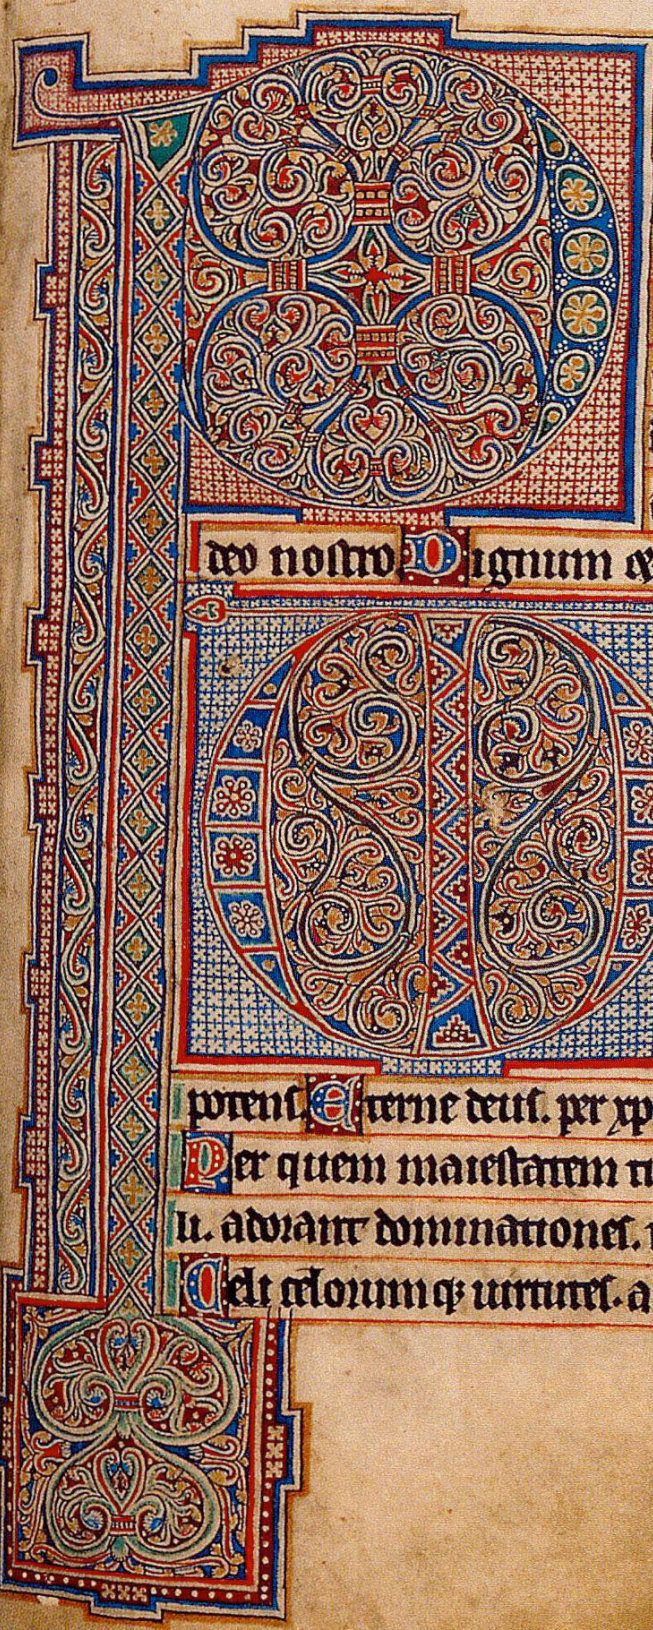 P
deo nostro Dignum
potens. Eterne deus. per xp
Per quem maiestatem t
li. adorant dominationes.
Celi celorumq; uirtutes. a